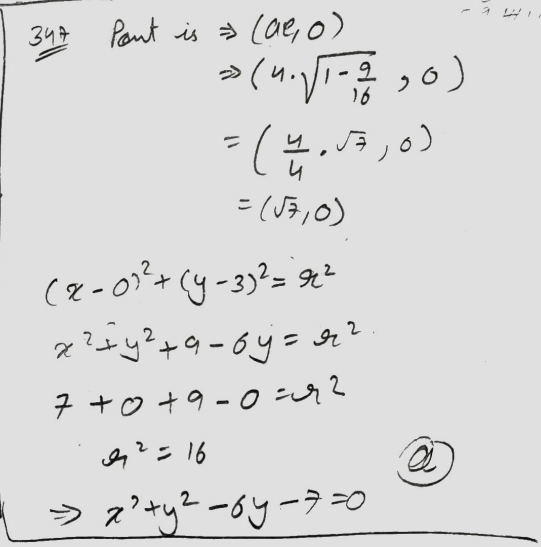 347 Point is ⇒ (ae, 0)
⇒ (4·√(1 - 9/16), 0)
= (4/4 · √7, 0)
= (√7, 0)
(x - 0)² + (y - 3)² = r²
x² + y² + 9 - 6y = r²
7 + 0 + 9 - 0 = r²
r² = 16
(a)
⇒ x² + y² - 6y - 7 = 0